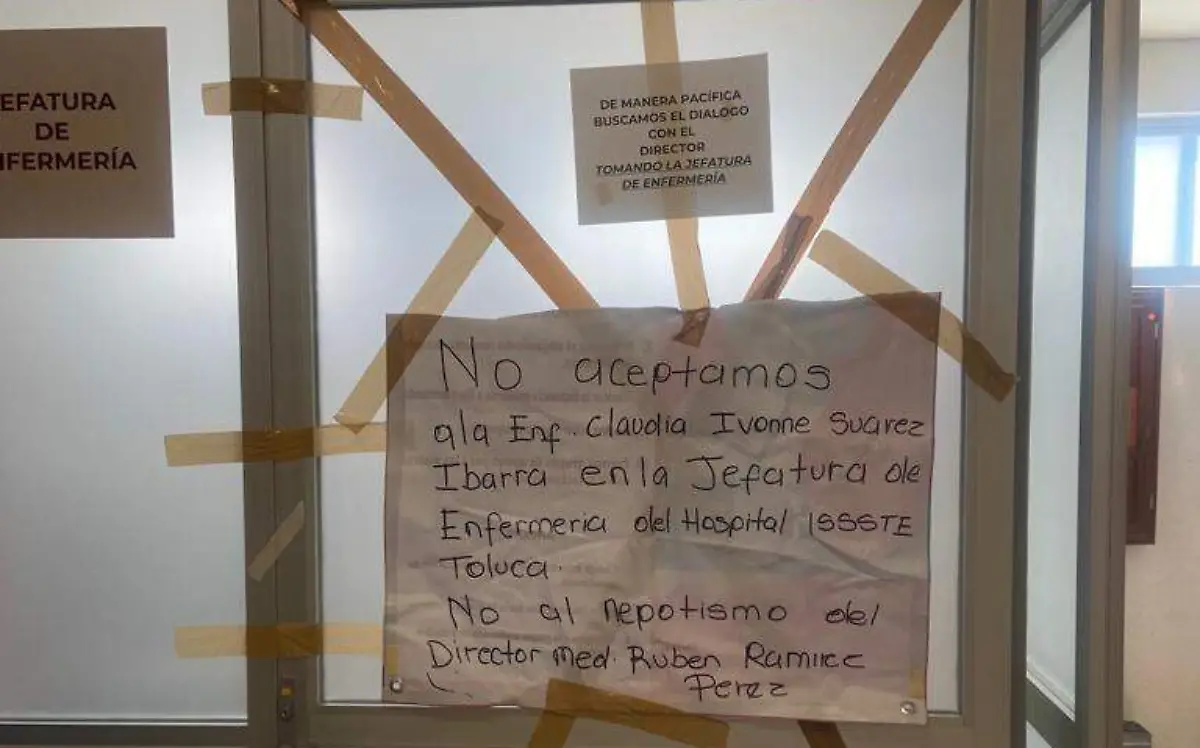 EFATURA
DE
NFERMERÍA
DE MANERA PACÍFICA
BUSCAMOS EL DIALOGO
CON EL
DIRECTOR
TOMANDO LA JEFATURA
DE ENFERMERÍA
No aceptamos
a la Enf. Claudia Ivonne Suarez
Ibarra en la Jefatura de
Enfermeria del Hospital ISSSTE
Toluca.
No al nepotismo del
Director Med. Ruben Ramirez
Perez